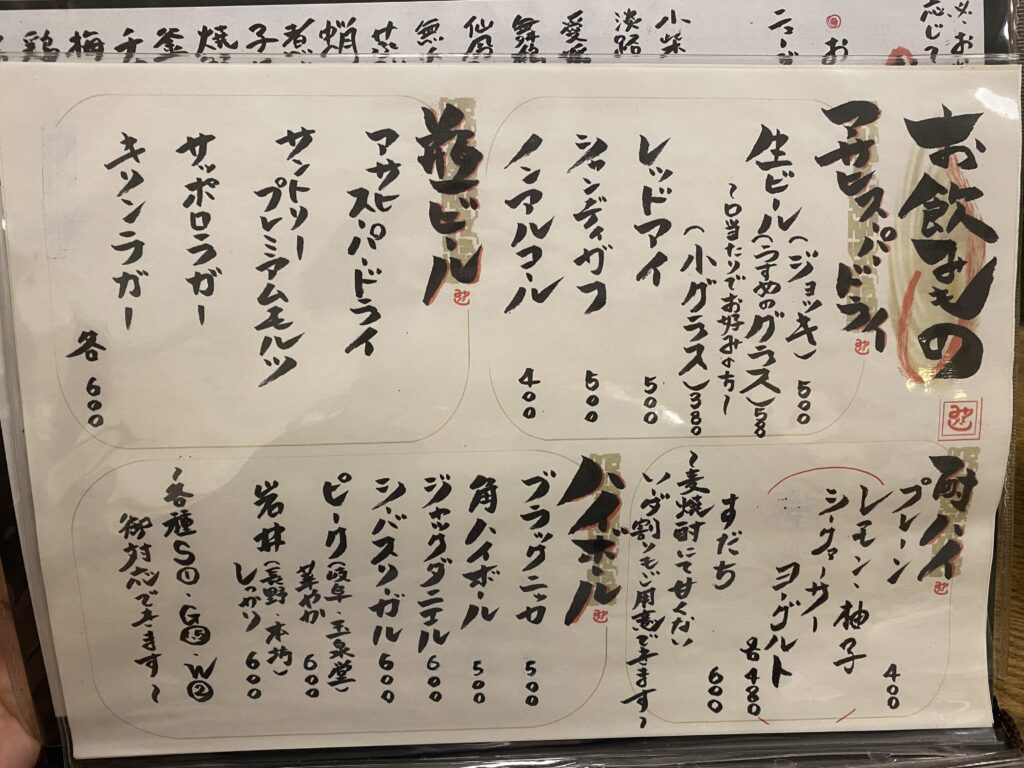 お飲みもの
アサヒスーパードライ
生ビール(ジョッキ) 500
(うすめのグラス) 580
〜口当たりでお好みのち〜
(小グラス) 380
レッドアイ 500
シャンディガフ 500
ノンアルコール 400
瓶ビール
アサヒスーパードライ
サントリー
プレミアムモルツ
サッポロラガー
キリンラガー
各 600
酎ハイ
プレーン 400
レモン・柚子
シークァーサー
ヨーグルト
各480
すだち 600
〜麦焼酎にて甘くない
ハイボール
ブラックニッカ 500
角ハイボール 500
ジャックダニエル 600
シーバスリーガル 600
ピーク(岐阜・玉泉堂)
華やか 600
岩井(長野・本坊)
しっかり 600
〜各種S①・G⑮・W②
御対応できます〜
必
お
応じて
お
小柴
淡路
愛媛
舞鶴
仙
無
蛸
煮
子
焼
釜
天
梅
鶏